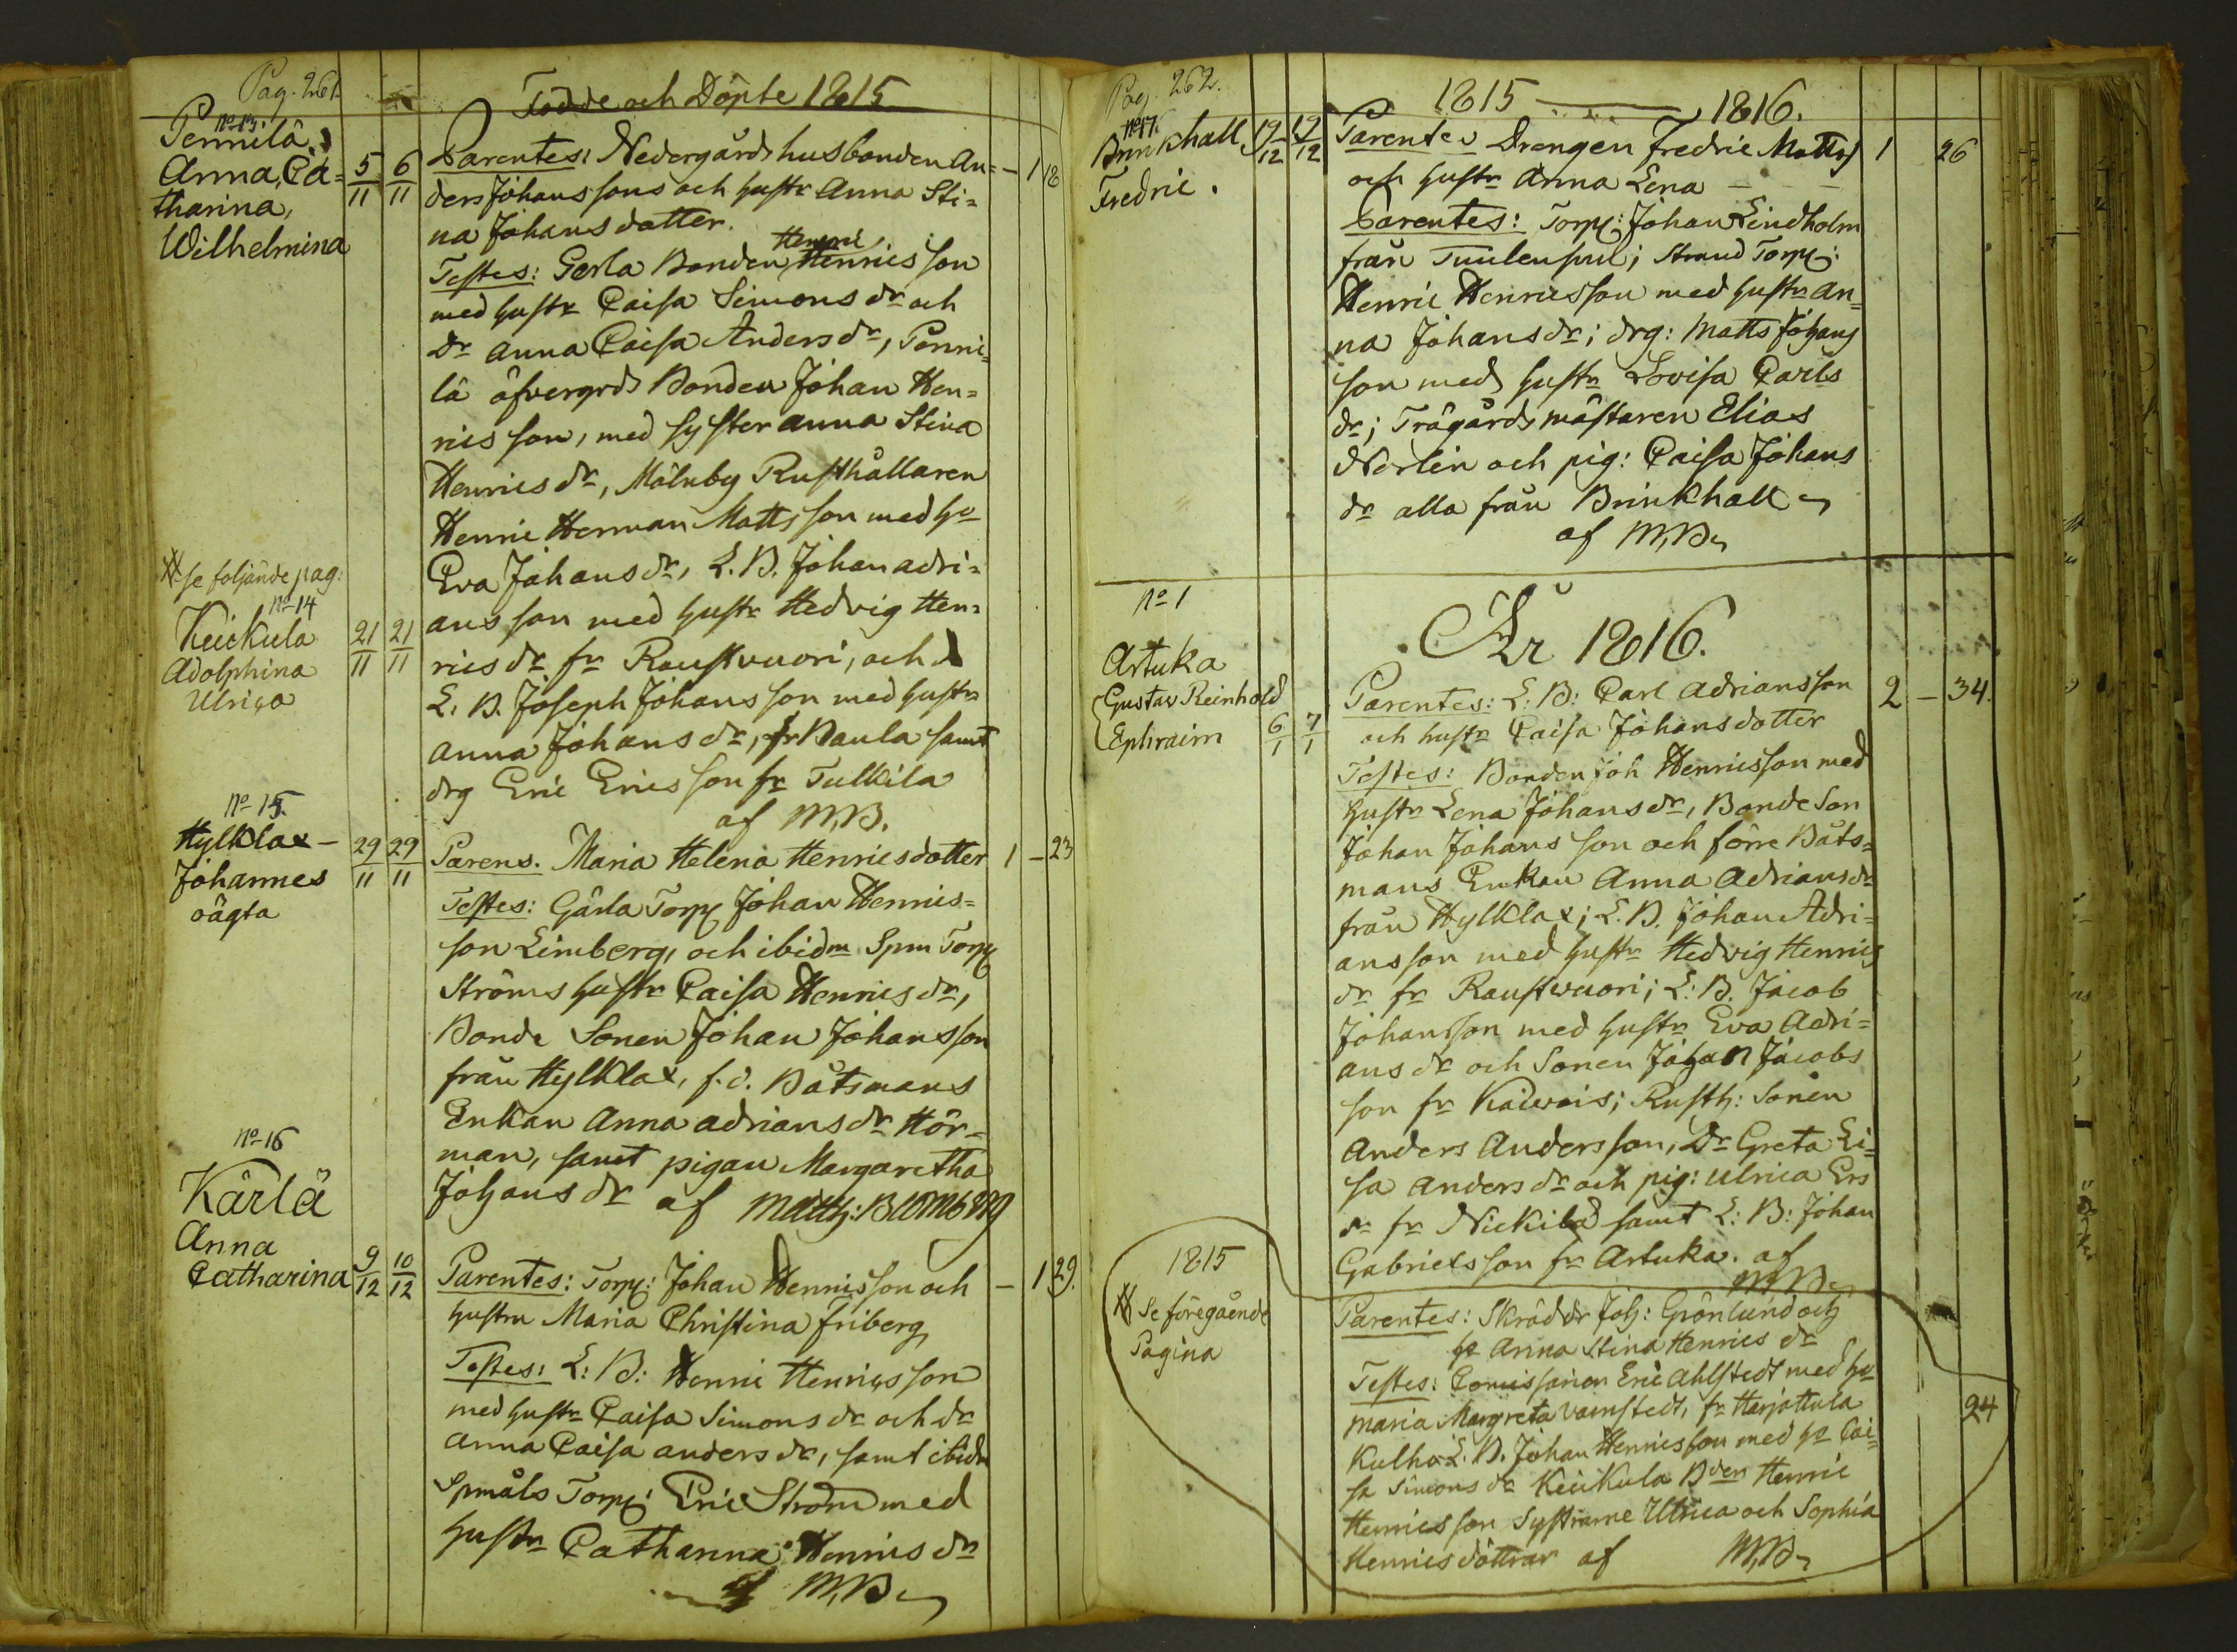 Pag. 261.
Födde och Döpte 1815
No 13.
Pennilä
Anna, Ca=
tharina,
Wilhelmina
5/11 6/11
Parentes: Nedergårds husbonden An=
ders Johanssons och hustr Anna Sti=
na Johansdotter.
Henric
Testes: Gerla Bonden Henricsson
med hustr Caisa Simons dr och
Dr Anna Caisa Anders dr, Penni=
lä öfvergrds Bonden Johan Hen=
ricsson, med syster Anna Stina
Henrics dr, Mälnby Rusthållaren
Henric Herman Mattsson med hu
Eva Johans dr, L. B. Johan Adri=
ansson med hustr Hedvig Hen=
rics dr fr Raustvuori, och
L. B. Joseph Johansson med hustr
Anna Johans dr, fr Baula samt
drg Eric Ericsson fr Tulkila
af M.B.
– 1 18
se följande pag:
No 14
Keickula
Adolphina
Ulrica
21/11 21/11
No 15.
Hylklax –
Johannes
oägta
29/11 29/11
Parens. Maria Helena Henricsdotter
Testes: Gärla Torp Johan Henrics=
son Limberg, och ibidm Spm Torp
Ströms hustr Caisa Henrics dr,
Bonde Sonen Johan Johansson
från Hylklax, f.d. Båtsmans
Enkan Anna Adrians dr Hör=
man, samt pigan Margaretha
Johans dr af Matth: Blomberg
1 – 23
No 16
Kärlä
Anna
Catharina
9/12 10/12
Parentes: Torp: Johan Henricsson och
hustru Maria Christina Friberg
Testes: L: B: Henric Henricsson
med hustr Caisa Simons dr och dr
Anna Caisa Anders dr, samt ibidm
Spmåls Torp: Eric Ström med
hustr Catharina Henrics dr
af M.B.
– 1 29.
Pag. 262.
1815 — 1816.
No 17.
Brinkhall
Fredric.
19/12 19/12
Parentes Drengen Fredric Matts
och hustr Anna Lena – –
Parentes: Torp: Johan Lindholm
från ; Strand Torp:
Henric Henricsson med hustr An=
na Johans dr; drg: Matts Johans
son med hustr Lovisa Carls
dr; Trägårdsmästaren Elias
Norlin och pig: Caisa Johans
dr alla från Brinkhall
af M.B.
1 26
År 1816.
No 1
Artuka
Gustav Reinhold
Ephraim
6/1 7/1
Parentes: L: B: Carl Adriansson
och hustr Caisa Johansdotter
Testes: Bonden Joh Henricsson med
hustr Lena Johans dr, Bonde Son
Johan Johansson och förre Båts=
mans Enkan Anna Adrians dr
från Hylklax; L. B. Johan Adri=
ansson med hustr Hedvig Henrics
dr fr Raustvuori; L: B. Jacob
Johansson med hustr Eva Adri=
ans dr och Sonen Johan Jacobs
son fr Kaiwois; Rusth: Sonen
Anders Andersson, Dr Greta Li=
sa Anders dr och pig: Ulrica Ers
dr fr Nickilä samt L: B: Johan
Gabrielsson fr Artuka. af
M.B.
2 – 34.
1815
Se föregående
Pagina
Parentes: Skräddr Joh: Grönlund och
hr Anna Stina Henrics dr
Testes: Eric Ahlstedt med hu
Maria Margreta fr Harjattula
Kulho L. B. Johan Henricsson med hu Cai=
sa Simons dr Keickula Bden Henric
Henricsson Systrarne Ulrica och Sophia
Henricsdöttrar af M.B.
24